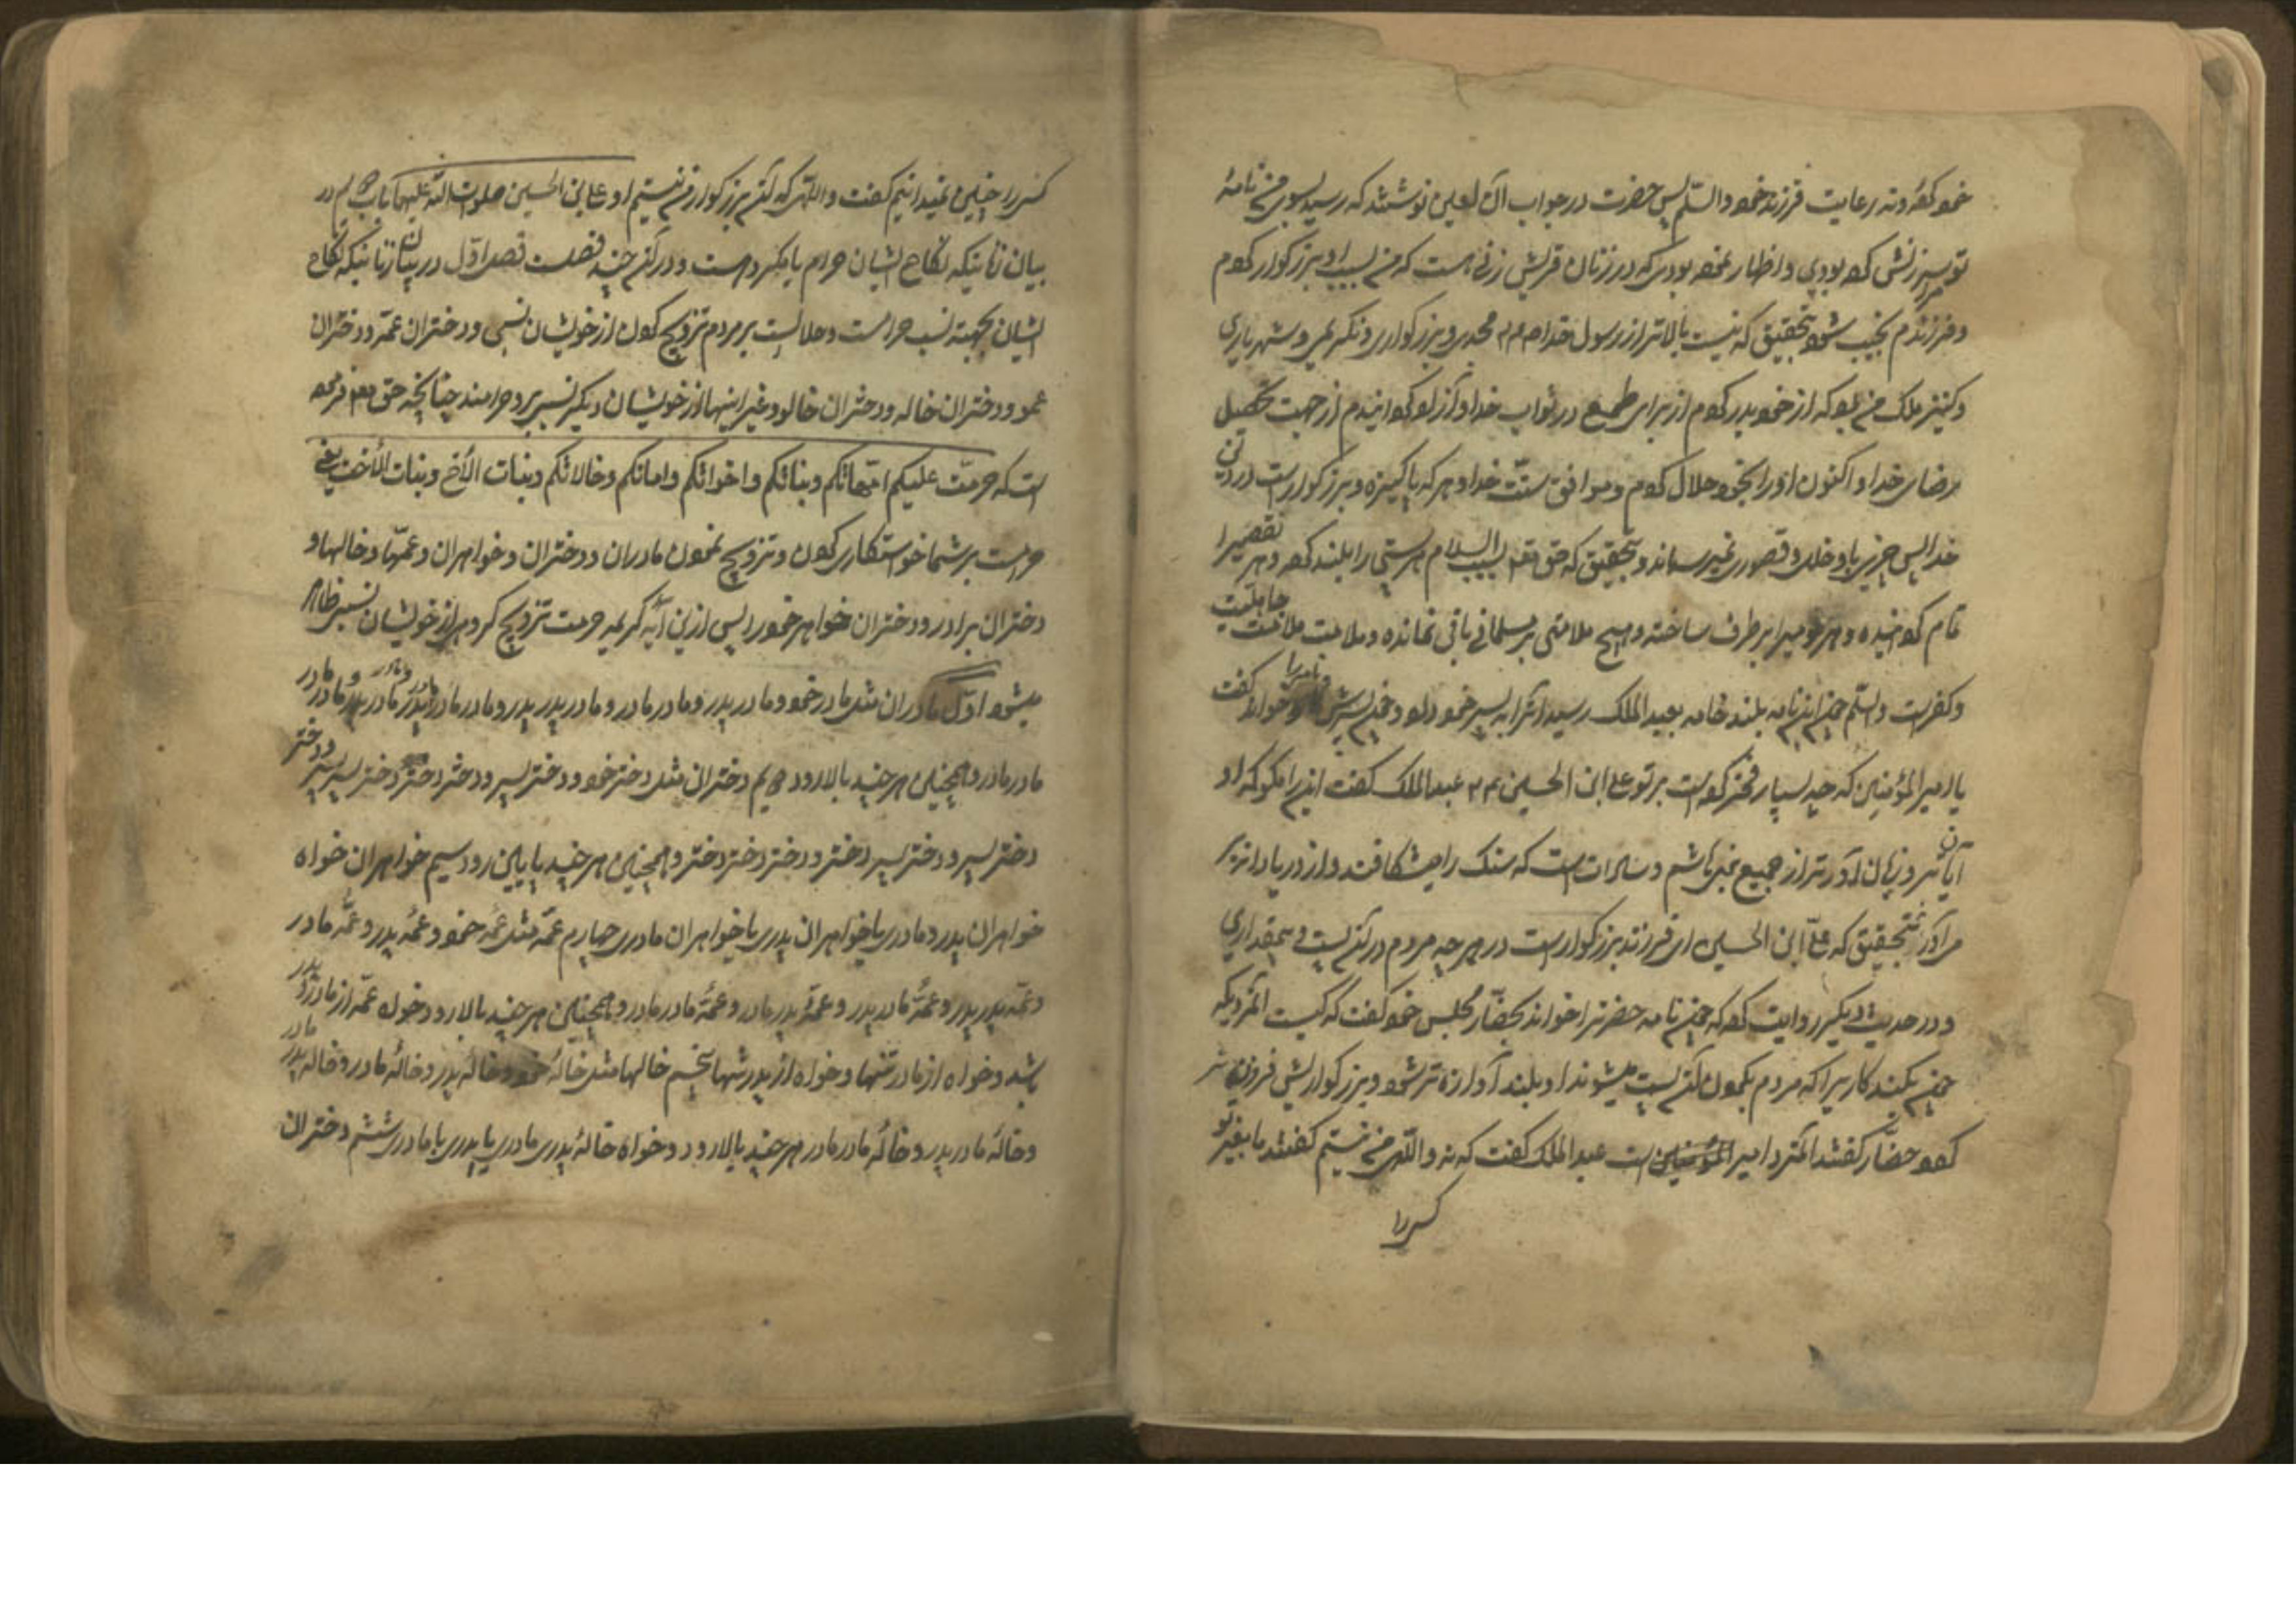 خود کرده و نه رعایت فرزند خود والسّلم پس حضرت در جواب آن لعین نوشتند که رسید بسوی من نامهٔ
تو سرزنش کرده بودی و اظهار نموده بودی که در زنان قریش زنی هست که من بسبب او بزرگوار کردم
و فرزندم نجیب شود بتحقیق که نیست بالاتر از رسول خدا صم مجدی و بزرگواری و نکریمی و شهریاری
و کنیز ملک من بود که از خود بدر کردم از برای طمع در ثواب خدا و آزاد کردانیدم از جهت تحصیل
رضای خدا و اکنون او را بخود حلال کردم و موافق سنّت خدا و هر که پاکیزه و بزرگوار است در دین
خدا پس چیزی باو خلل و قصوری نمیرساند و بتحقیق که حق تعم بسبب اسلام هر پستی را بلند کرده و هر تقصیرا
تام کردانیده و هر را برطرف ساخته و هیچ ملامتی بر مسلمانی باقی نمانده و ملامت ملامت جاهلیت
و کفر است والسّلم چون این نامه بلند خامه بعبد الملک رسید آنرا به پسر خود داد و چون پسرش نامه را خواند گفت
یا امیر المؤمنین که چه بسیار فخر کرده است بر تو علی ابن الحسین عم عبد الملک گفت این را مگو که او
آیا تر و زبان آورتر از جمیع بنی هاشم و سادات است که سنک را میشکافند و از دریا دانه بر
می آورند بتحقیق که علی ابن الحسین ای فرزند بزرگوار است در هر چه مردم در آن پست و بیمقداری
و در حدیث دیگر روایت کرده که چون نامه حضرترا خواند بحضّار مجلس خود گفت که کیست المرد یکه
چون بکند کاریرا که مردم بکردن آن پست میشوند او بلند آوازه تر شود و بزرگواریش فزون تر
کردد حضّار گفتند المرد امیر المؤمنین است عبد الملک گفت که نه والله من نیستم گفتند ما بغیر تو
کسیرا
کسی را چنین نمیدانیم گفت والله که آن بزرگوار من نیستم او علی ابن الحسین صلوات الله علیهما باب دویم در
بیان زنانیکه نکاح ایشان حرام یا مکروهست و در آن چند فصلست فصل اوّل در بیان زنانیکه نکاح
ایشان بجهة نسب حرامست و حلالست بر مردم تزویج کردن از خویشان نسبی و دختران عمّه و دختران
عمو و دختران خاله و دختران خالو و غیر اینها از خویشان دیگر نسبی بر مرد حرامند چنانچه حق تعم فرموده
است که حرّمت علیکم امّهاتکم وبناتکم واخواتکم وعماتکم وخالاتکم وبنات الأخ وبنات الأخت یعنی
حرامست بر شما خواستکاری کردن و تزویج نمودن مادران و دختران و خواهران و عمّها و خالها و
دختران برادر و دختران خواهر خود را پس ازین آیهٔ کریمه حرمت تزویج کروهی از خویشان نسبی ظاهر
میشود اوّل مادران مثل مادر خود و مادر پدر و مادر مادر و مادر پدر پدر و مادر مادر پدر و مادر پدر مادر و مادر
مادر مادر و همچنین هر چند بالا رود دویم دختران مثل دختر خود و دختر پسر و دختر دختر و دختر پسر پسر و دختر
دختر پسر و دختر پسر دختر و دختر دختر دختر و همچنین هر چند پایین رود سیم خواهران خواه
خواهران پدر و مادری یا خواهران پدری یا خواهران مادری چهارم عمّه مثل عمّهٔ خود و عمّهٔ پدر و عمّهٔ مادر
و عمّهٔ پدر پدر و عمّهٔ مادر پدر و عمّهٔ پدر مادر و عمّهٔ مادر مادر و همچنین هر چند بالا رود و خواه عمّه از مادر و پدر
باشد و خواه از مادر تنها و خواه از پدر تنها پنجم خالها مثل خالهٔ خود و خالهٔ پدر و خالهٔ مادر و خالهٔ پدر مادر
و خالهٔ مادر پدر و خالهٔ مادر مادر هر چند بالا رود و خواه خالهٔ پدری مادری یا پدری یا مادری ششم دختران